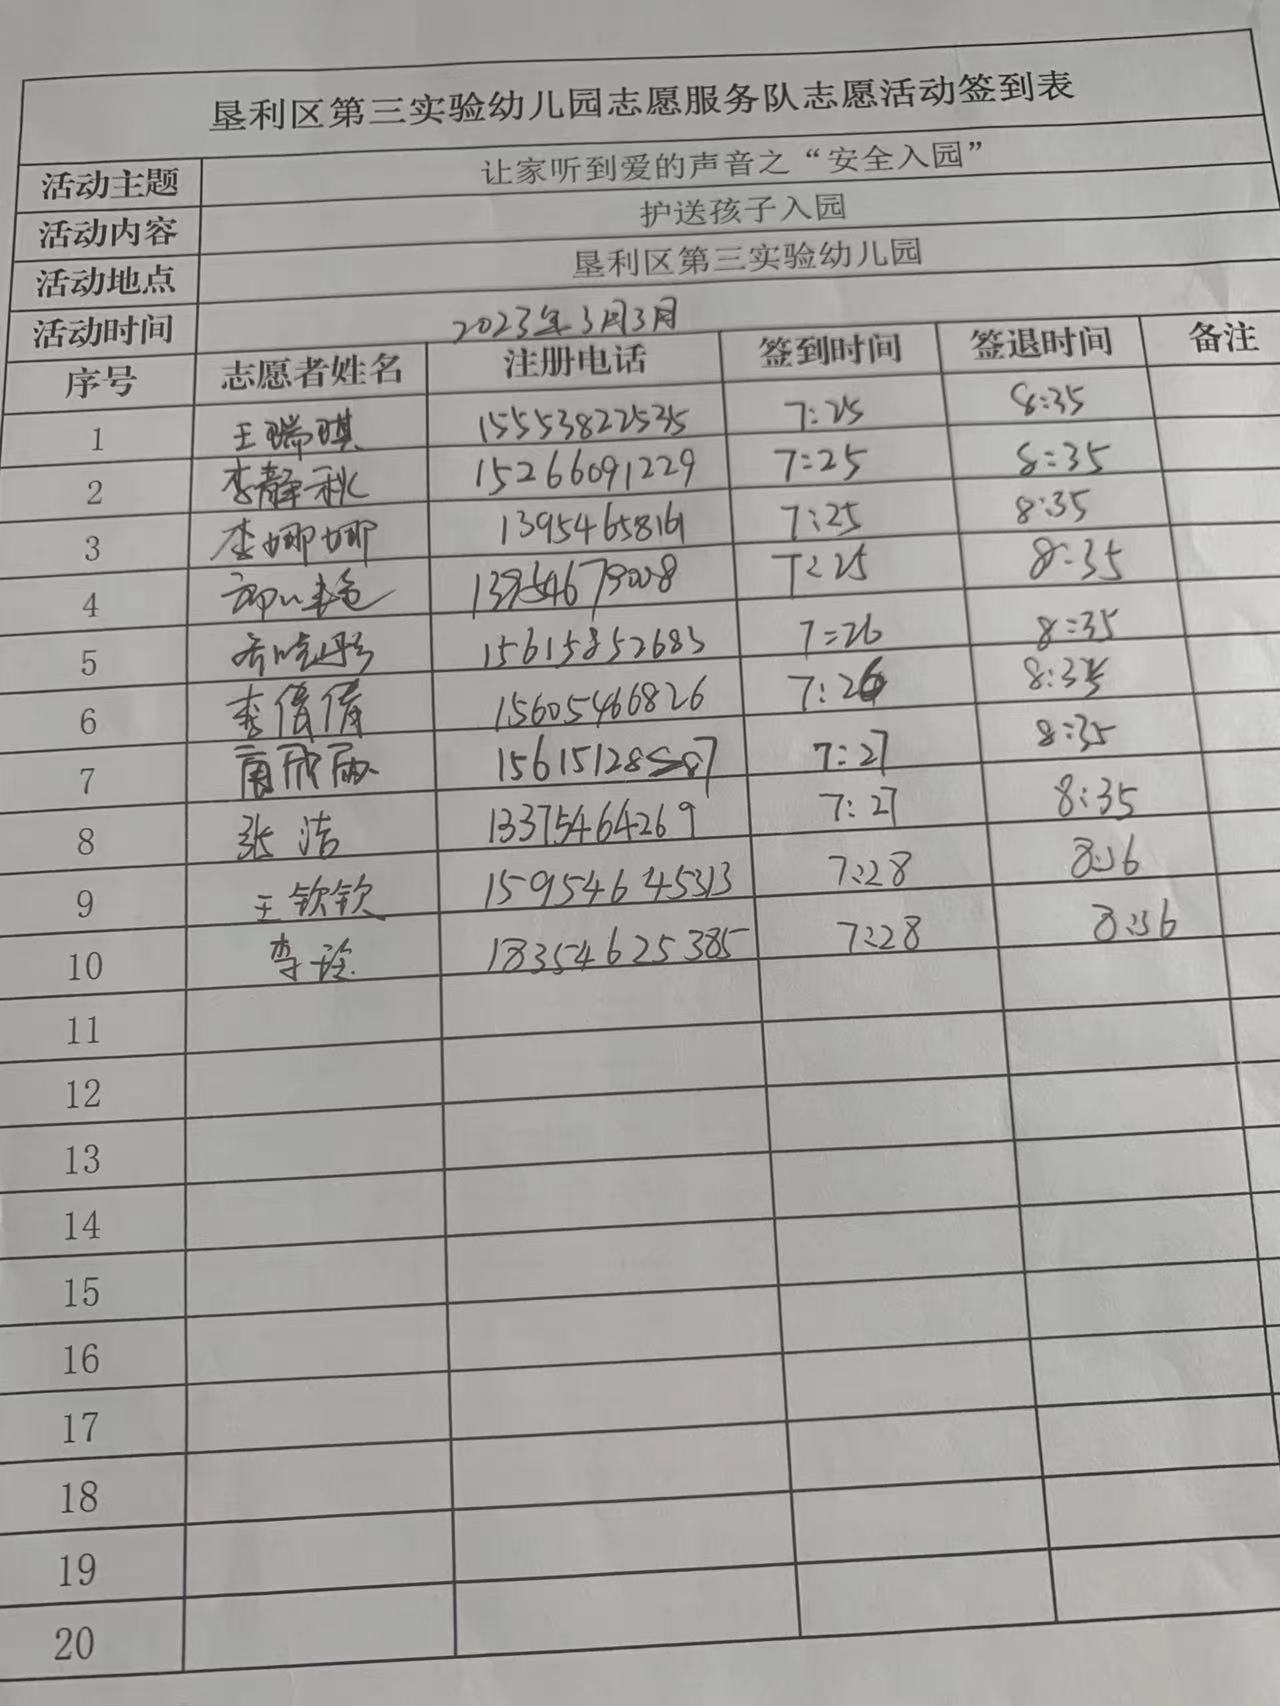 垦利区第三实验幼儿园志愿服务队志愿活动签到表
活动主题 让家听到爱的声音之“安全入园”
活动内容 护送孩子入园
活动地点 垦利区第三实验幼儿园
活动时间 2023年3月3月
序号 志愿者姓名 注册电话 签到时间 签退时间 备注
1 王瑞琪 15553822535 7:25 8:35
2 李静秋 15266091229 7:25 8:35
3 李娜娜 13954658161 7:25 8:35
4 13954679008 7:25 8:35
5 15615852683 7:26 8:35
6 李倩倩 15605466826 7:26 8:35
7 7:27 8:35
8 张洁 13375464269 7:27 8:35
9 王钦钦 15954645313 7:28 8:36
10 李玲 18354625385 7:28 8:36
11
12
13
14
15
16
17
18
19
20